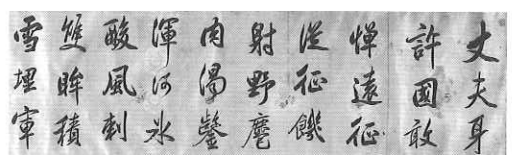 丈夫身
許國敢
憚遠征
從征饑
射野麞
肉渴鑿
渾河氷
酸風刺
雙眸積
雪埋軍